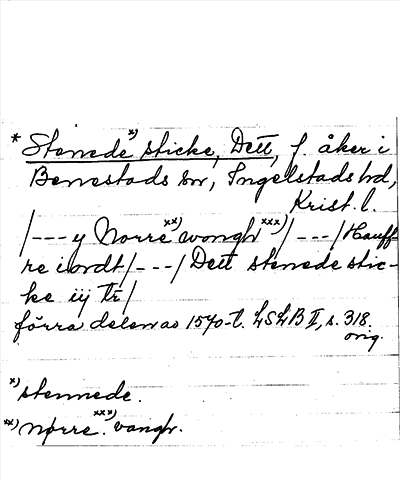 * Stenede x) sticke, Dett, f. åker i
Benestads sn, Ingelstads hd,
Krist. l.
/---y Norre xx) wongh xxx) /---/ Hauff-
re iordt /---/ Dett stenede stic-
ke iij tr /
förra delen av 1570-t. LSLB II, s. 318.
orig.
x) stennede.
xx) nørre. xxx) vangh.